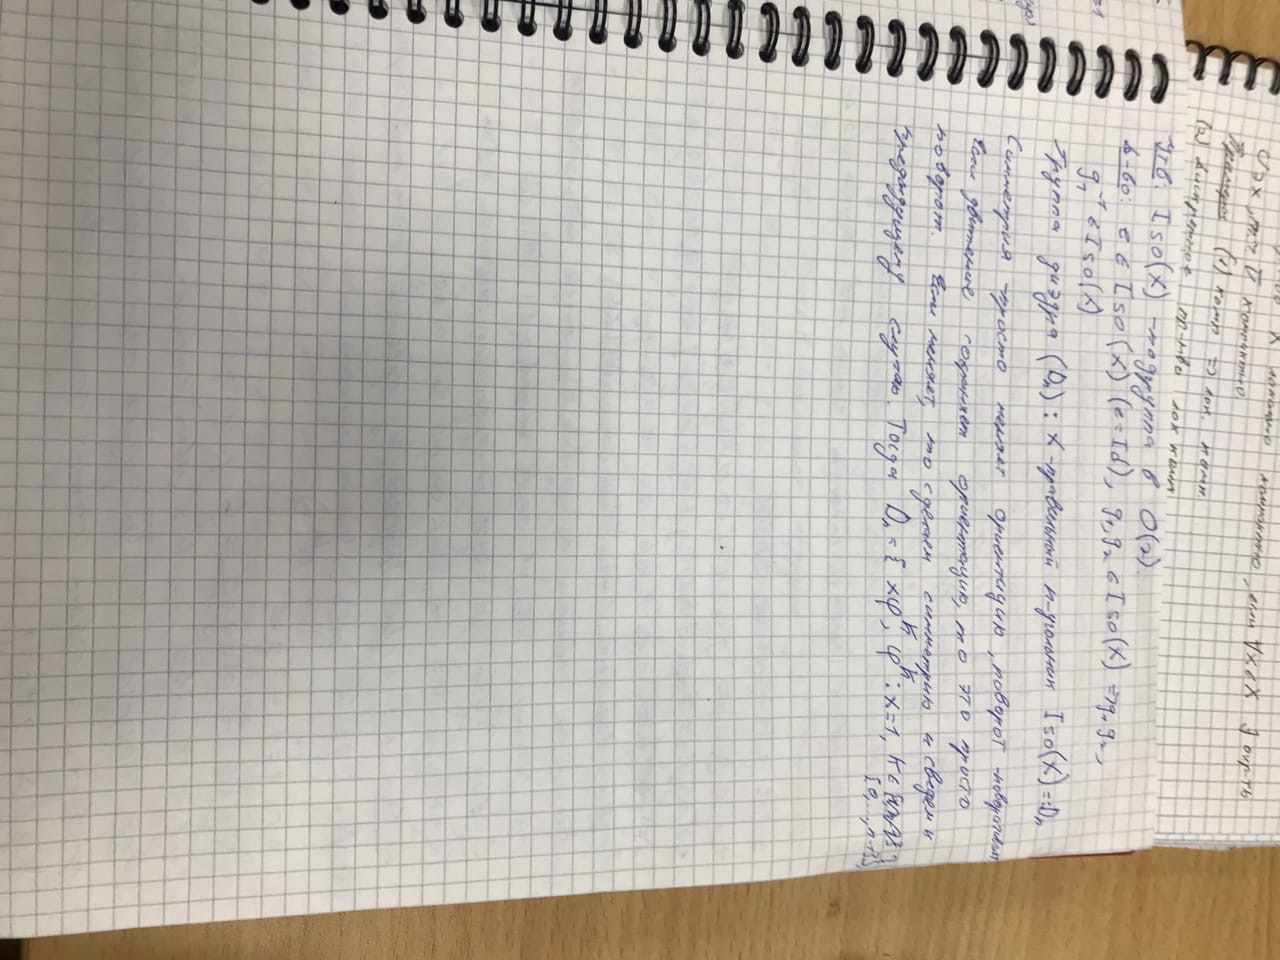 X локально компактно, если ∀x∈X ∃ окр-ть
U∋x, т.ч. Ū компактно.
Примеры (1) комп ⇒ лок. комп.
(2) Дискретное пр-тво лок комп
Утв: Iso(X) - подгруппа в O(2).
Д-во: e ∈ Iso(X) (e = Id), g₁, g₂ ∈ Iso(X) ⇒ g₁g₂,
g₁⁻¹ ∈ Iso(X)
Группа диэдра (Dₙ): X - правильный n-угольник Iso(X) =: Dₙ
Симметрия - просто меняет ориентацию, поворот - поворачивает
Если движение сохраняет ориентацию, то это просто
поворот. Если меняет, то сделаем симметрию и сведем к
предыдущему случаю. Тогда Dₙ = { xφᵏ, φᵏ : x = 1, k ∈
{0,...,n-1}},